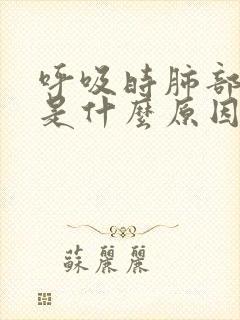 呼吸时肺部
是什麼原因
蘇麗麗